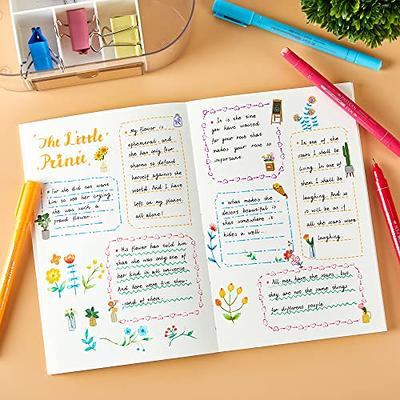 "The Little
Prince"
• My flower is
ephemeral, and
she has only four
thorns to defend
herself against the
world. And I have
left on my planet,
all alone!
• For she did not want
him to see her crying.
she was such a
proud flower...
• His flower had told him
that she was only one of
her kind in all universe.
And here were five
and of them
• It is the time
you have wasted
for your rose that
makes your rose so
important.
• what makes the
desert beautiful is
that somewhere it
hides a well.
• In one of the
stars I shall be
living. In one of
them I shall be
laughing. And so
it will be as if
all the stars were
laughing.
• All men have the stars, but
they are not the same things
for different people.